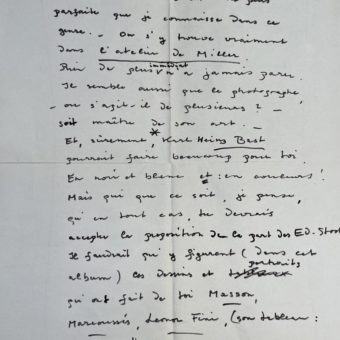 parfaite que je connaisse dans ce
genre. – On s'y trouve vraiment
dans l'atelier de Miller.
immédiat
Rien de plus n'a jamais paru.
Je semble aussi que le photographe,
– ou s'agit-il de plusieurs ? –
soit maître de son art. –
*
Et, sûrement, Karl Heinz Bast
pourrait faire beaucoup pour toi.
En noir et blanc et : en couleurs !
Mais qui que ce soit, je pense,
qu'en tout cas, tu devrais
accepter la proposition de la part des ED. Stock
Il faudrait qu'y figurent (dans cet
portraits
album) les dessins et
qui ont fait de toi Masson,
Marcoussis, Leonor Fini, (son tableau :